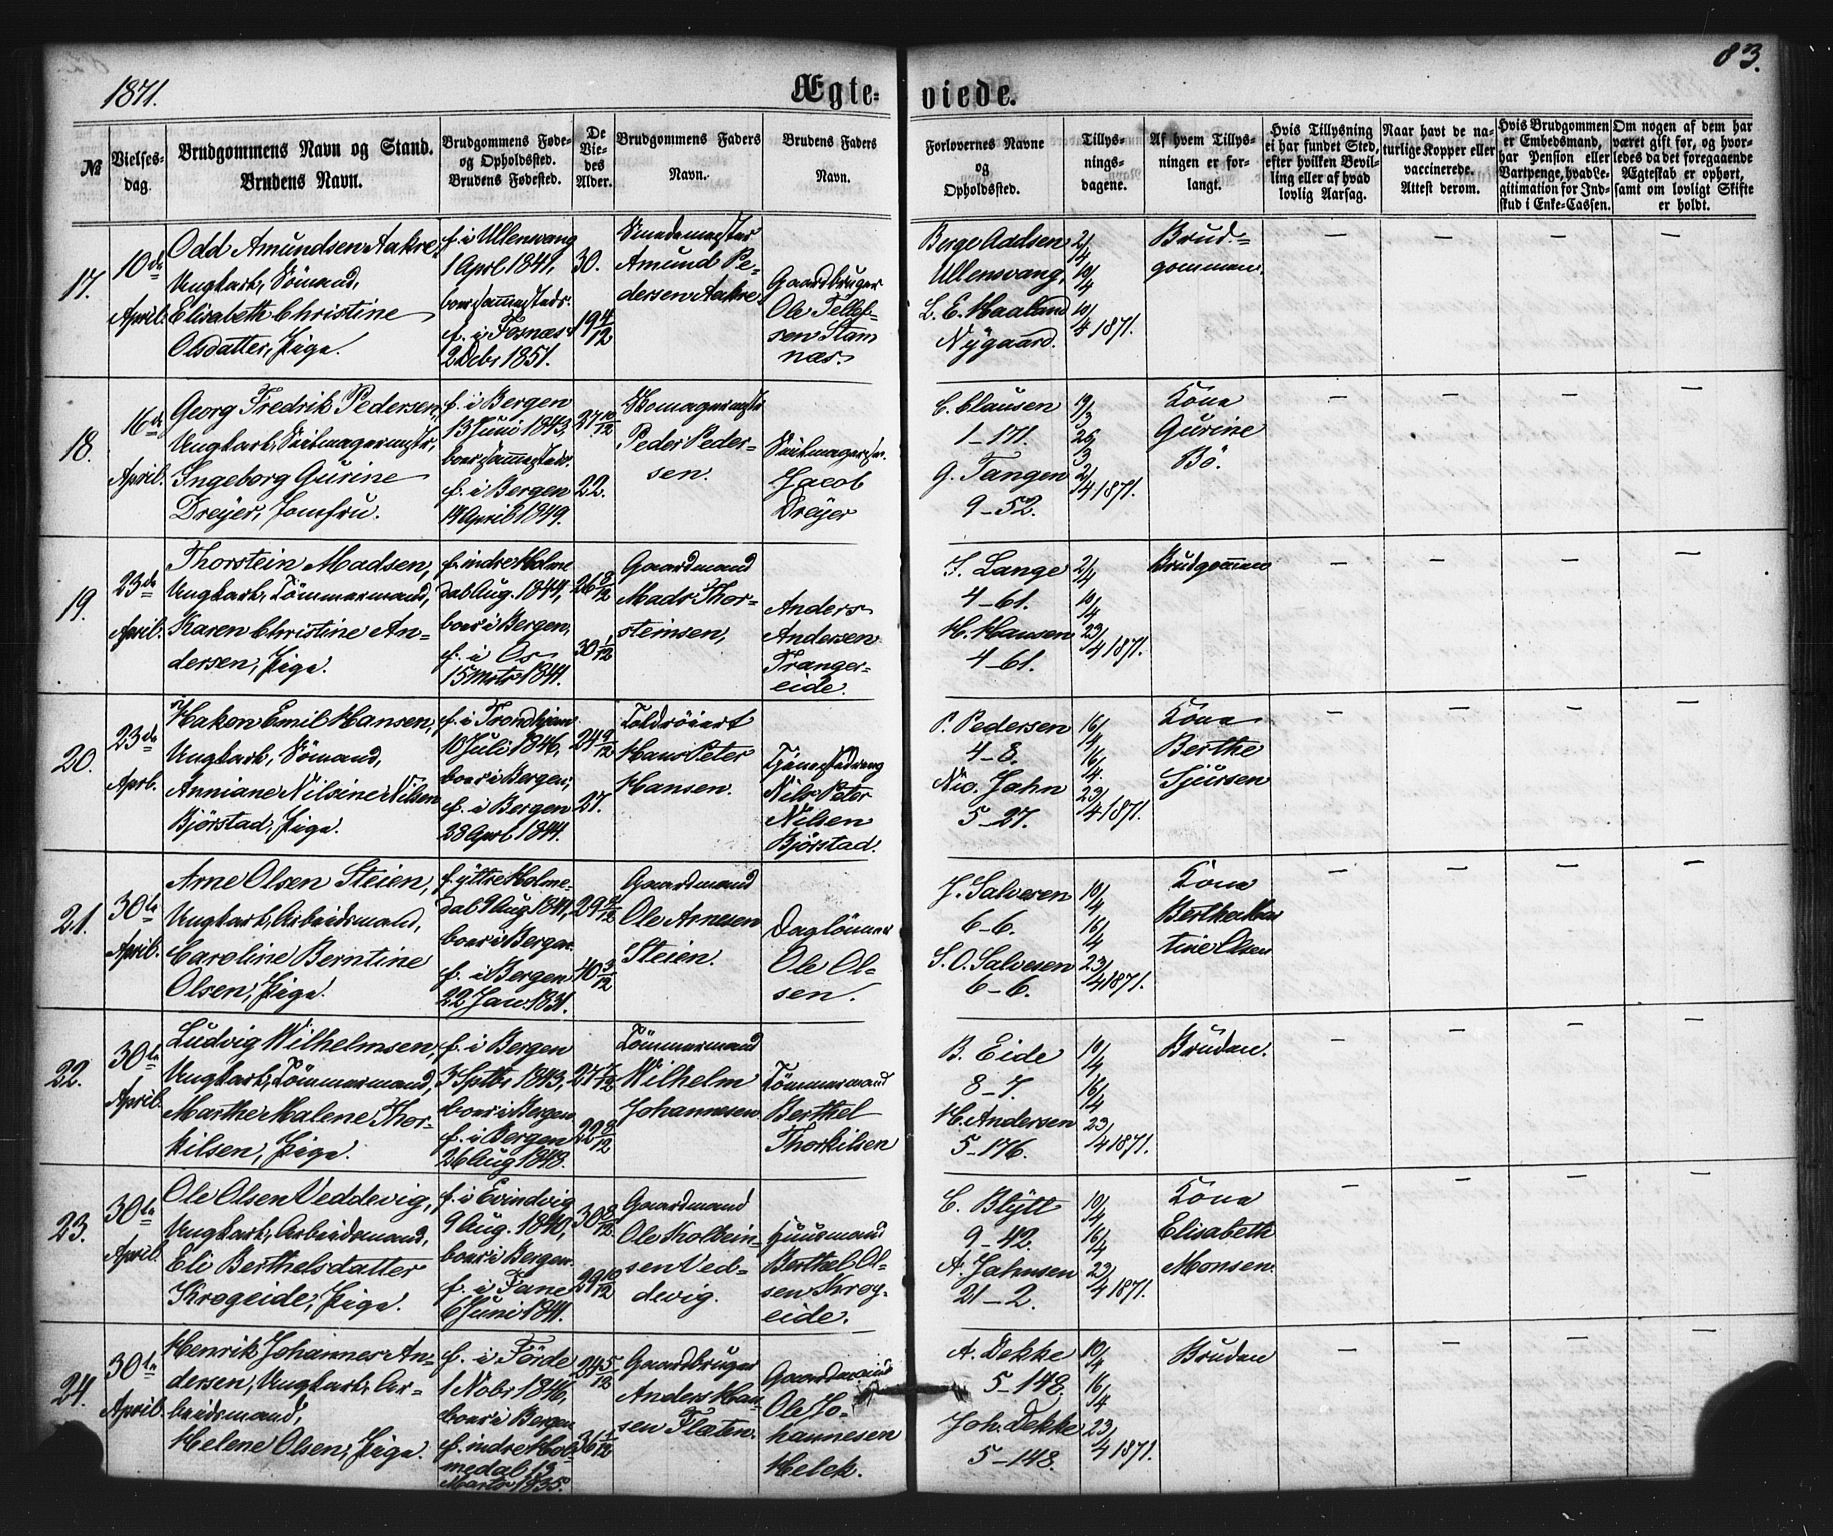 1871.
Ægte-
viede.
83.
№
Vielses-
dag.
Brudgommens Navn og Stand.
Brudens Navn.
Brudgommens Føde-
og Opholdssted.
Brudens Fødested.
De
Vie-
des
Alder.
Brudgommens Faders
Navn.
Brudens Faders
Navn.
Forlovernes Navne
og
Opholdssted.
Tillys-
nings-
dagene.
Af hvem Tillys-
ningen er for-
langt.
Hvis Tillysning
ei har fundet Sted,
efter hvilken Bevil-
ling eller af hvad
lovlig Aarsag.
Naar havt de na-
turlige Kopper eller
vaccinerede.
Attest derom.
Hvis Brudgommen
er Embedsmand,
har Pension eller
Vartpenge, hvad Le-
gitimation for Ind-
skud i Enke-Cassen.
Om nogen af dem har
været gift før, og hvor-
ledes da det foregaaende
Ægteskab er ophørt,
samt om lovligt Skifte
er holdt.
17.
10de
April.
Odd Amundsen Aakre,
Ungkarl, Sömand,
Elisabeth Christine
Olsdatter, Pige.
f. i Ullensvang
1 April 1841,
boer sammesteds.
f. i
2 Debr 1851.
30.
19 4/12
Amund Pe-
dersen Aakre
Gaardbruger
Ole Tellef-
sen Stam
næs.
Berge Aadsen
Ullensvang,
L. E. Haaland
Nygaard.
2/4
10/4
10/4 1871.
Brud-
gommen.
18.
16de
April.
Georg Fredrik Pedersen,
Ungkarl,
Ingeborg Gurine
Dreÿer, Jomfru.
f. i Bergen
13 Juni 1843,
boer sammesteds.
f. i Bergen
14 April 1849.
27 10/12
22.
Peder Peder-
sen.
Jacob
Dreÿer
C. Clausen
1-171.
G. Tangen
9-52.
19/3
26/3
2/4 1871.
Kone
Gurine
Bö.
19.
23de
April.
Thorstein Madsen,
Ungkarl, Tömmermand,
Karen Christine An-
dersen, Pige.
f. indre Holme
dal Aug. 1844,
boer i Bergen,
f. i Os
15 Marts 1841.
26 8/12
30 1/12
Gaardmand
Mads Thor-
steinsen,
Anders
Andersen
Tranger-
eide.
S. Lange
4-61.
H. Hansen
4-61.
2/4
10/4
23/4 1871.
Brudgommen
20.
23de
Aprl.
Hakon Emil Hansen,
Ungkarl, Sömand,
Anniane Nilsine Nilsen
Bjørstad, Pige.
f. i Trondhjem
10 Juli 1846,
boer i Bergen;
f. i Bergen
23 Aprl 1844.
24 9/12
27.
Toldröiert
Hans Peter
Hansen.
Nils Peter
Nilsen
Bjørstad.
P. Pedersen
4-8.
Nic. Jahn
5-27.
16/4
16/4.
23/4 1871.
Kone
Berthe
Sjursen
21.
30te
April.
Arne Olsen Steien,
Ungkarl, Arbeidsmand,
Caroline Berntine
Olsen, Pige.
f. ÿttre Holme-
dal 9 Aug 1841,
boer i Bergen
f. i Bergen
22 Jan 1831.
29 8/12
40 3/12
Gaardmand
Ole Arnesen
Steien.
Daglönner
Ole Ol-
sen.
J. Salvesen
6-6.
S. O. Salvesen
6-6.
10/4
16/4
23/4 1871.
Kone
tine Olsen
22.
30te
April.
Ludvig Wilhelmsen,
Ungkarl, Tömmermand,
Marthe Malene Thor-
kilsen, Pige.
f. i Bergen
5 Septbr 1843,
boer i Bergen
f. i Bergen
26 Aug 1848.
27 7/12
22 8/12
Tömmermand
Wilhelm
Johannesen
Tömmermand
Berthel
Thorkilsen
B. Eide
8-7.
H. Andersen
5-176.
10/4
16/4
23/4 1871.
Bruden.
23.
30te
April.
Ole Olsen Veddevig,
Ungkarl, Arbeidsmand,
Eli Berthelsdatter
Krogeide, Pige.
f. i Evindvig
9 Aug. 1840,
boer i Bergen
f. i Fane
6 Juni 1841.
30 8/12
29 10/12
Gaardmand
Ole Kolbein-
sen Ved-
devig.
Huusmand
Berthel Ol-
sen Krog-
eide.
C. Blÿtt
9-42.
A. Jahnsen
21-2.
10/4
16/4
23/4 1871.
Kone
Elisabeth
Monsen.
24.
30te
April.
Henrik Johannes An-
dersen, Ungkarl, Ar-
beidsmand,
Helene Olsen, Pige.
f. i Förde
1 Nobr 1846,
boer i Bergen
f. indre Hol-
medal 13
Marts 1835.
24 5/12
36 1/12
Gaardbruger
Anders Han-
sen Flaten.
Gaardmand
Ole Jo-
hannesen
Helek.
A. Dekke
5-148.
Joh. Dekke
5-148.
10/4
16/4
23/4 1871.
Bruden